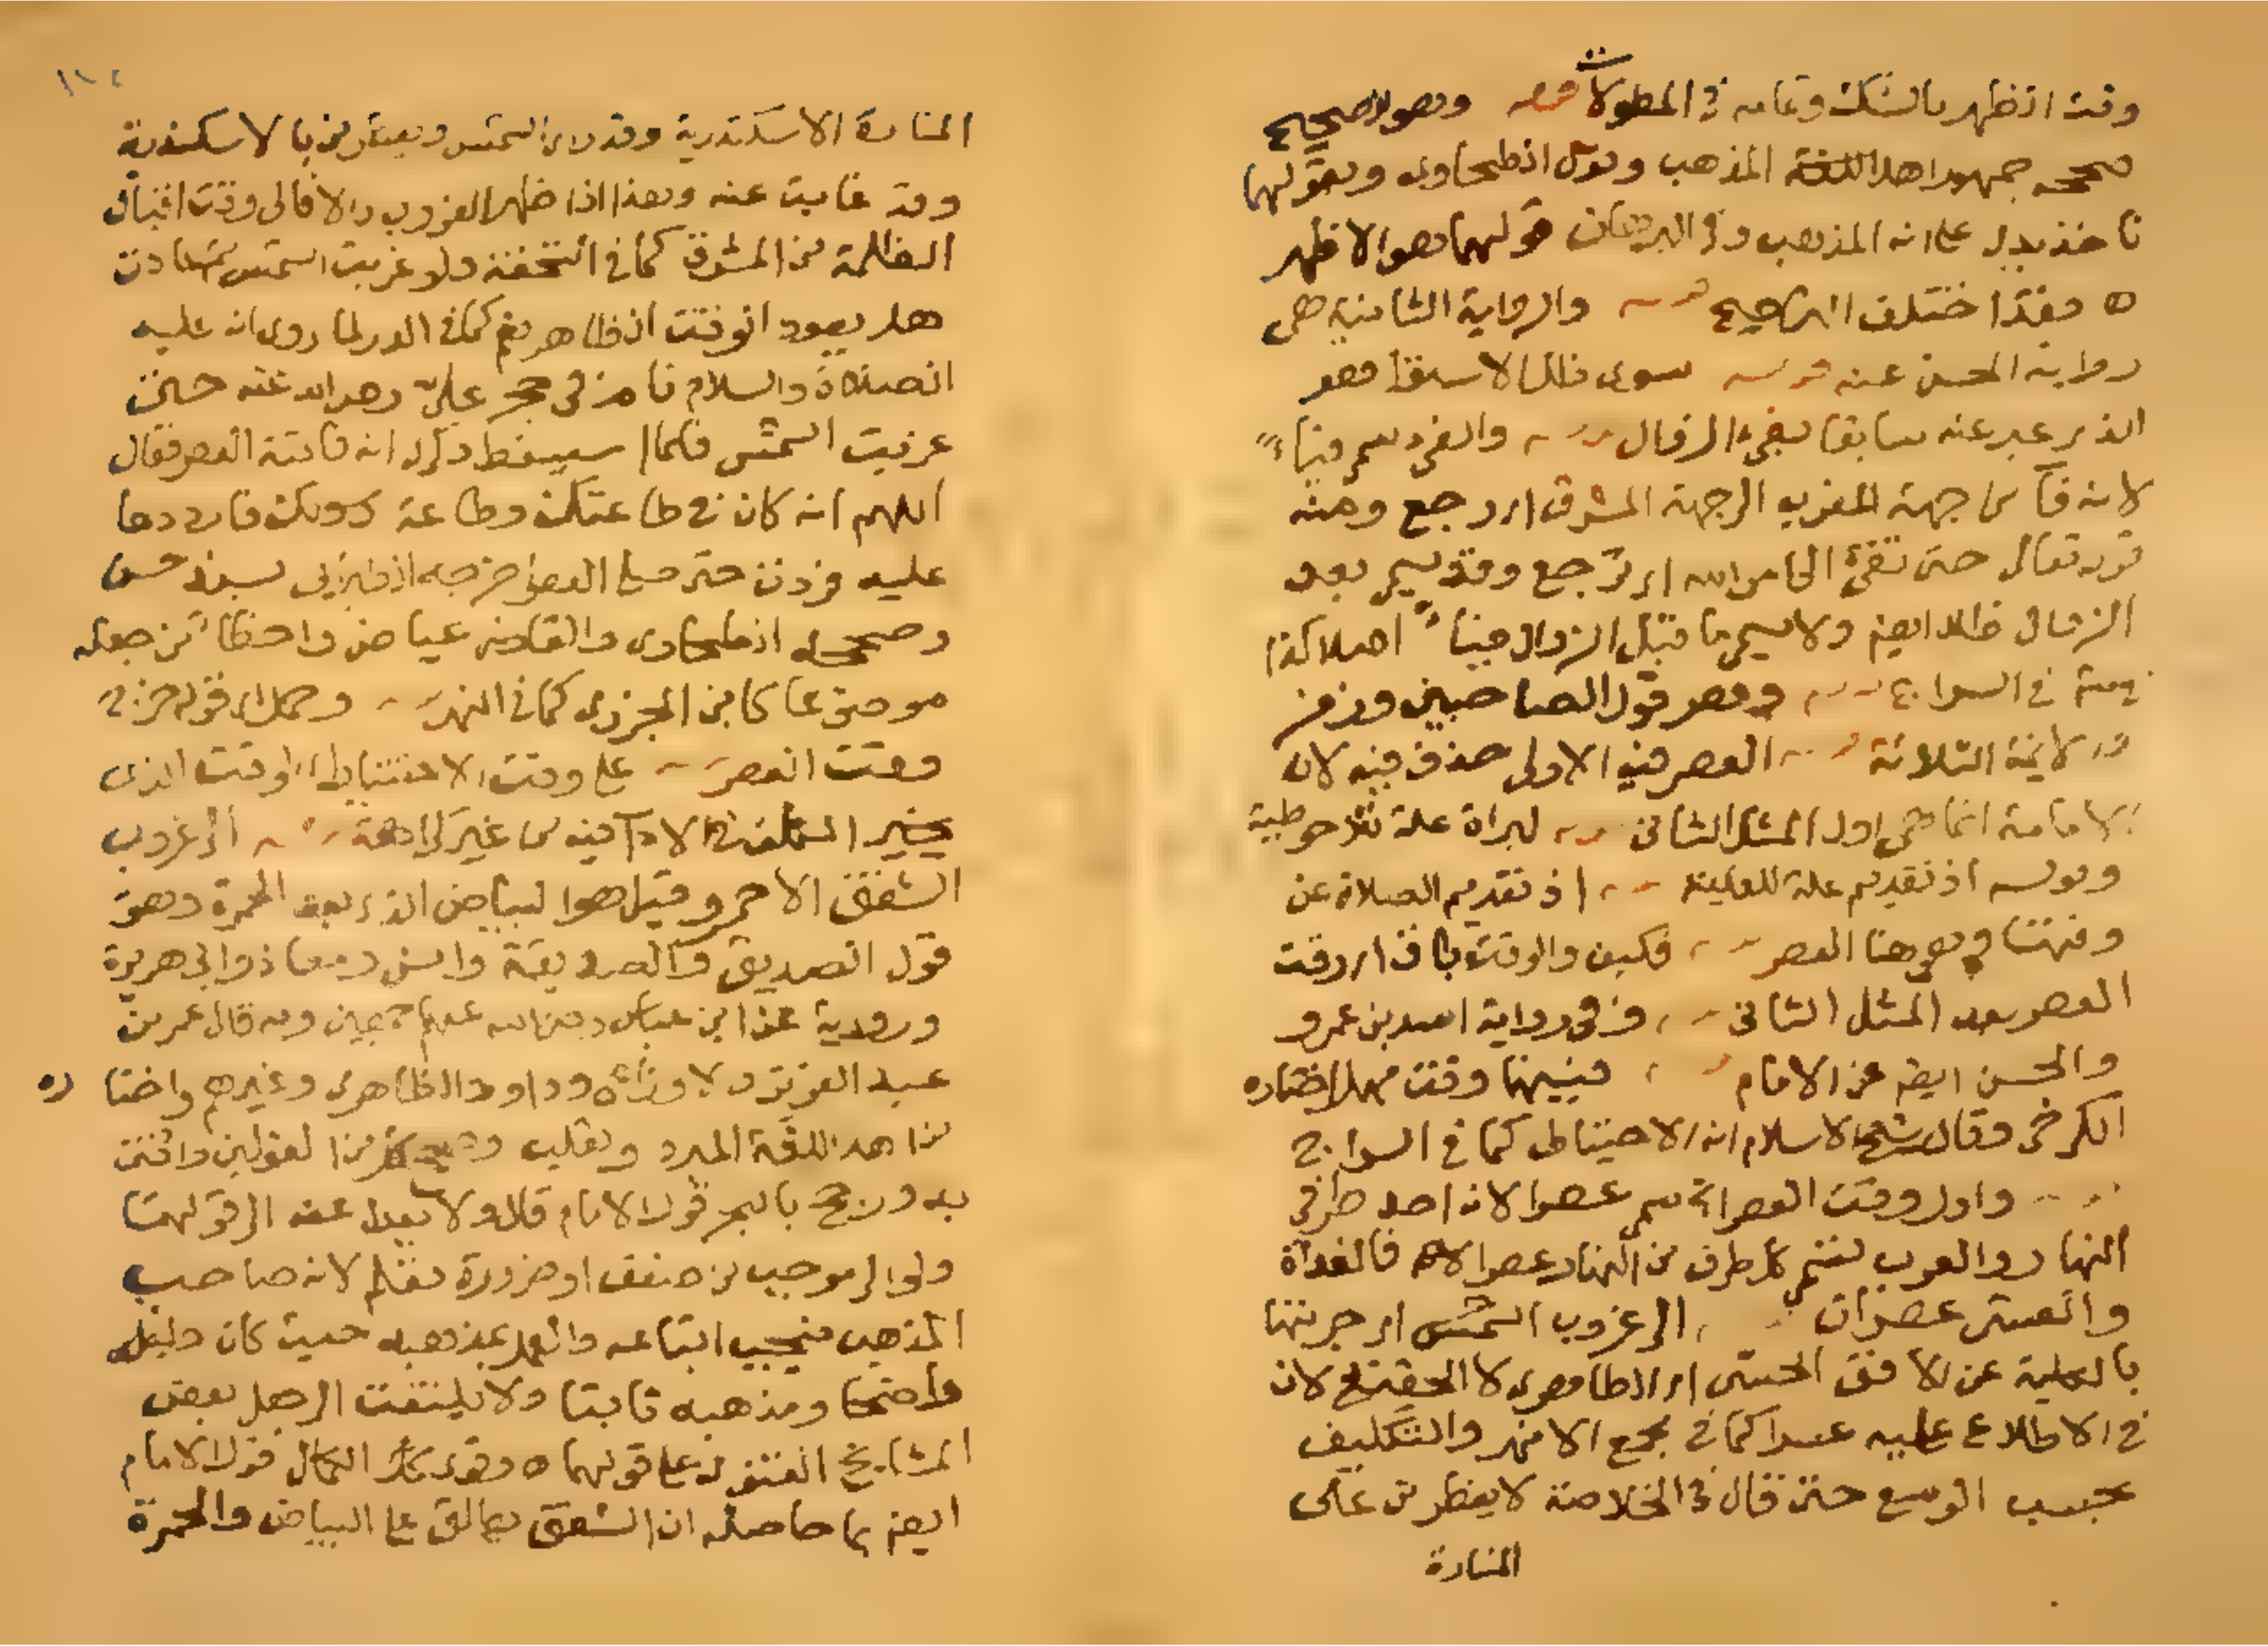 وقت الظهر بالشك وتمامه في المطولات قوله وهو الصحيح
صححه جمهور اهل المذهب وقول الطحاوي وبقولهما
ناخذ يدل على انه المذهب وفي البرهان قولهما هو الاظهر
ه فقد اختلف الترجيح والرواية الثانية هي
رواية الحسن عنه سوى ظل الاستواء هو
الذي عبر عنه سابقا بفيء الزوال والفيء سمي فيئا
لانه فاء من جهة المغرب الى جهة المشرق اي رجع ومنه
قوله تعالى حتى تفيء الى امر الله اي ترجع وقد يسمى بعد
الزوال ظلا ايضا ولا يسمى ما قبل الزوال فيئا اصلا كذا
في السراج وهو قول الصاحبين وزفر
والايمة الثلاثة العصر فيه الاولى حذف فيه لان
الامامة انما هي اول المثل الثاني لبراة علة للاحوطية
وقوله اذ تقديم علة للعلية اذ تقديم الصلاة عن
وقتها وهو هنا العصر فكيف والوقت باق اي وقت
العصر بعد المثل الثاني وفي رواية اسد بن عمرو
والحسن ايضا عن الامام فبينهما وقت مهمل اختاره
الكرخي وقال شيخ الاسلام انه الاحتياط كما في السراج
واول وقت العصر انما سمي عصرا لانه احد طرفي
النهار والعرب تسمي كل طرف من النهار عصرا فالغداة
والعشي عصران الى غروب الشمس اي جرمها
بالكلية عن الافق الحسي اي الظاهري لا الحقيقي لان
في الاطلاع عليه عسرا كما في مجمع الانهر والتكليف
بحسب الوسع حتى قال في الخلاصة لا يفطر من على
المنارة
المنارة الاسكندرية وقد راى الشمس ويفطر من بالاسكندرية
وقد غابت عنه وهذا اذا ظهر الغروب والا فالى وقت اقبال
الظلمة من المشرق كما في التحفة ولو غربت الشمس ثم عادت
هل يعود الوقت الظاهر نعم كما في الدر لما روي انه عليه
الصلاة والسلام نام في حجر علي رضي الله عنه حتى
غربت الشمس فلما استيقظ ذكر له انه فاتته العصر فقال
اللهم انه كان في طاعتك وطاعة رسولك فارددها
عليه فردت حتى صلى العصر خرجه الطبراني بسند حسن
وصححه الطحاوي والقاضي عياض واخطا من جعله
موضوعا كابن الجوزي كما في النهر وحمل اي قوله اخر
وقت العصر على وقت الاحتياط اي الوقت الذي
يخير المكلف في الاداء فيه من غير كراهة الى غروب
الشفق الاحمر وقيل هو البياض الذي بعد الحمرة وهو
قول الصديق والصديقة وانس ومعاذ وابي هريرة
ورواية عن ابن عباس رضي الله عنهم اجمعين وبه قال عمر بن
عبد العزيز والاوزاعي وداود الظاهري وغيرهم واختا ره
من اهل اللغة المبرد وثعلب وصحح كل من القولين وافتى
به ورجح بالبحر قول الامام قال ولا يعدل عنه الى قولهما
ولو لموجب من ضعف او ضرورة تعامل لانه صاحب
المذهب فيجب اتباعه والعمل بمذهبه حيث كان دليله
واضحا ومذهبه ثابتا ولا يلتفت الى جعل بعض
المشايخ الفتوى على قولهما ه وقوى الكمال قول الامام
ايضا بما حاصله ان الشفق يقال على البياض والحمرة